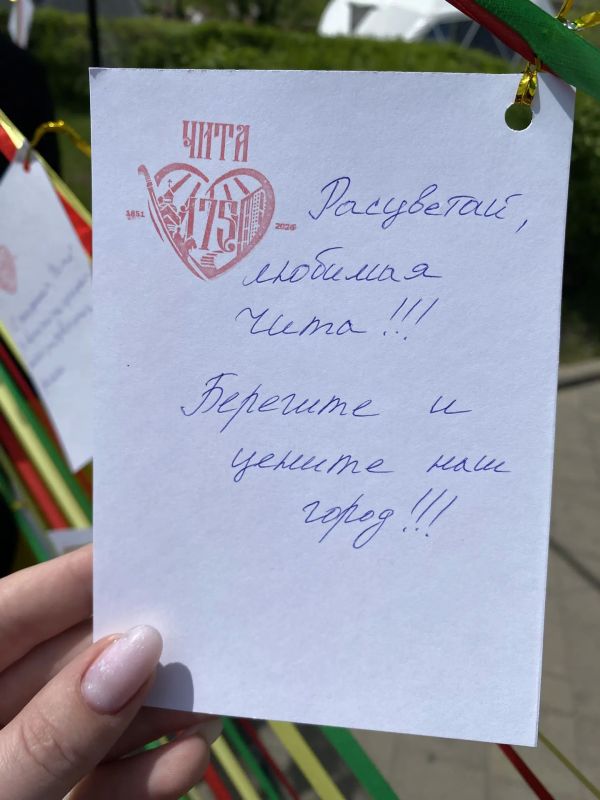 ЧИТА
1851 175 2026
Расцветай,
любимая
Чита!!!
Берегите и
цените наш
город!!!